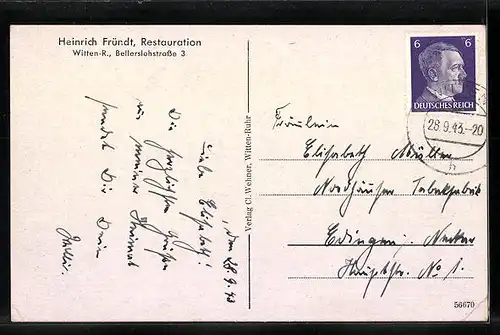 Heinrich Fründt, Restauration
Witten-R., Bellerslohstraße 3
, den 28.9.43
Liebe Elisabeth!
Die herzlichsten Grüße
aus meiner Heimat
sendet Dir Dein
Verlag Cl. Wehner, Witten-Ruhr
6 6
DEUTSCHES REICH
28.9.43.-20
h
Fräulein
Elisabeth Müller
Nordhäuser Tabakfabrik
Edingen, Neckar
Hauptstr. No 1.
56670